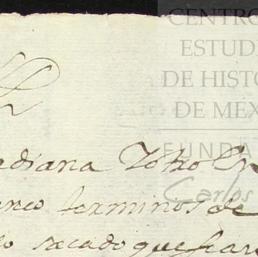 CENTRO
ESTUDI
DE HISTO
DE MÉX
FUNDA
Carlos
adiana Yotro En
enco terminos de
lo sacado que sear